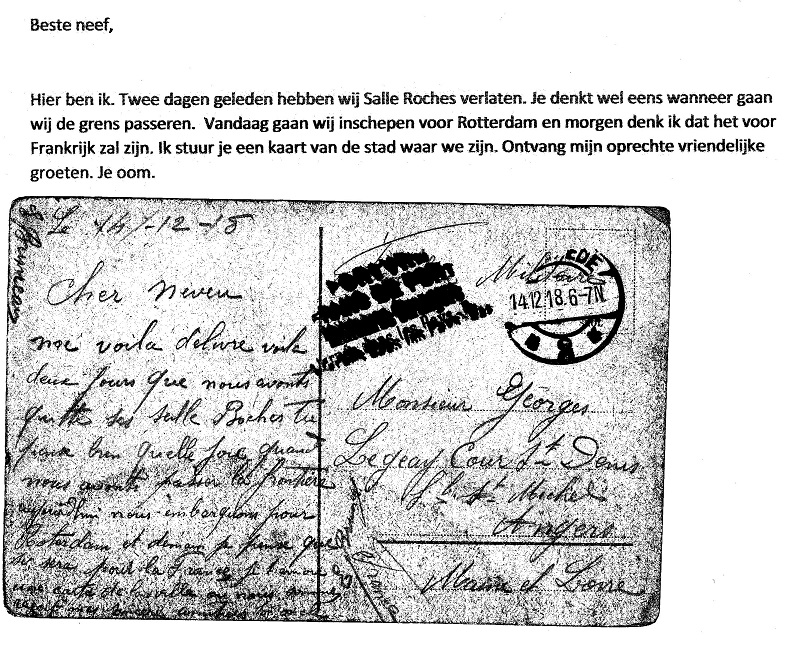 Beste neef,
Hier ben ik. Twee dagen geleden hebben wij Salle Roches verlaten. Je denkt wel eens wanneer gaan
wij de grens passeren. Vandaag gaan wij inschepen voor Rotterdam en morgen denk ik dat het voor
Frankrijk zal zijn. Ik stuur je een kaart van de stad waar we zijn. Ontvang mijn oprechte vriendelijke
groeten. Je oom.
Le 14-12-18
Cher neveu
me voila délivré voila
deux jours que nous avonts
quitté ses salle Boches tu
pense bien quelle joie quand
nous avonts passer la frontière
aujourd'hui nous embarquons pour
Roterdam et demain je pense que
sera pour la France je t'envoie
une carte de la ville ou nous
EDE
14.12.18.6-7N
Monsieur Georges
Legeay Cour St Denis
St Michel
Angers
Maine et Loire